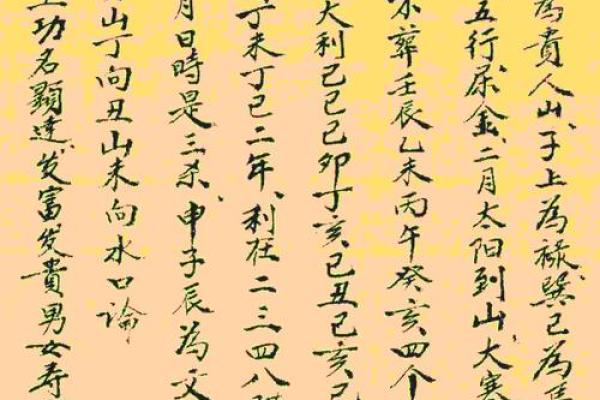 為貴人山、子上為祿、巽巳為馬
五行屬金、二月太阳到山、大寒
葬壬辰乙未丙午癸亥、四个
大利己巳己卯丁亥、己丑己亥己
丁未丁巳二年、利在二三四八
月日時是三杀、申子辰為文
山丁向丑山未向水口論
功名顯達、发富发貴男女寿